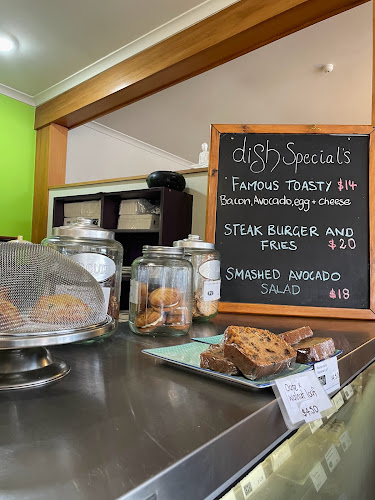 dish Special's
FAMOUS TOASTY $14
Bacon, Avocado, egg + cheese
STEAK BURGER AND
FRIES $20
SMASHED AVOCADO
SALAD $18
Date &
Walnut loaf
$4.50